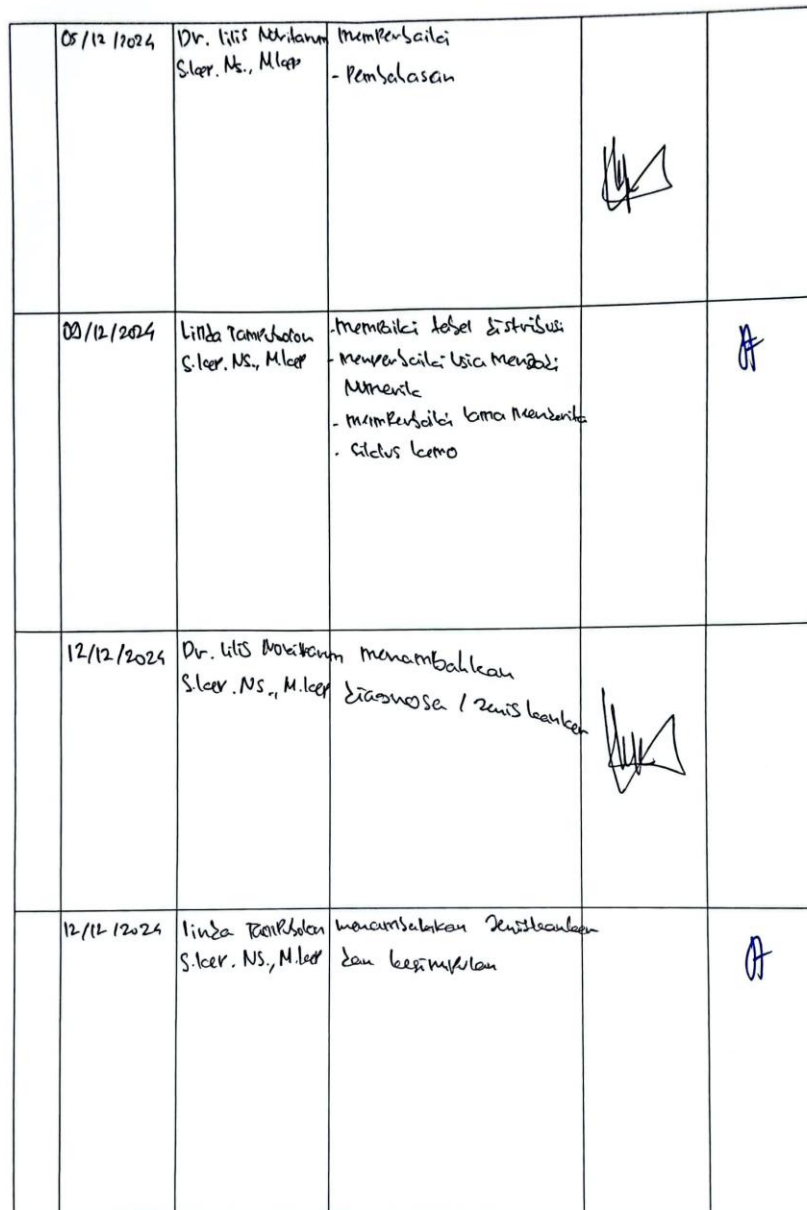 05/12/2024
Dr. Lilis Novitarum
S.kep. Ns., M.kep
memperbaiki
- Pembahasan
09/12/2024
Linda Tampubolon
S.kep. NS., M.kep
- membaiki tabel distribusi
- memperbaiki Usia menjadi
Numerik
- memperbaiki lama menderita
- siklus kemo
12/12/2024
Dr. Lilis Novitarum
S.kep. NS., M.kep
menambahkan
diagnosa / Jenis kanker
12/12/2024
linda Tampubolon
S.kep. NS., M.kep
menambahkan Jenis kanker
dan kesimpulan